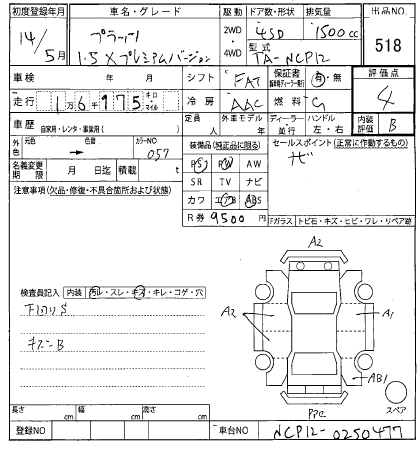 初度登録年月 車名・グレード 駆動 ドア数・形状 排気量 出品NO
14/5月 プラッツ 2WD・4WD 4SD 1500cc 518
1.5Xプレミアムバージョン 型式 TA-NCP12
車検 年 月 シフト FAT 保証書 有・無 評価点
走行 1万6千975 キロ・マイル 冷房 AAC 燃料 G 4
車歴 自家用・レンタ・事業用( ) 定員 人 外車モデル 年 ディーラー・並行 ハンドル 左・右 内装評価 B
外色 元色 色替 カラーNO 057 装備品(純正品に限る) セールスポイント(正常に動作するもの)
PS PW AW
名義変更期限 月 日迄 積載 t SR TV ナビ
注意事項(欠品・修復・不具合箇所および状態) カワ エアB ABS
R券 9500 円 Fガラス トビ石・キズ・ヒビ・ワレ・リペア跡
A2
検査員記入 内装 汚レ・スレ・キズ・キレ・コゲ・穴
A2 A1
下回りS
キズ B
AB1
スペア
長さ cm 幅 cm 高さ cm
登録NO 車台NO NCP12-0250477